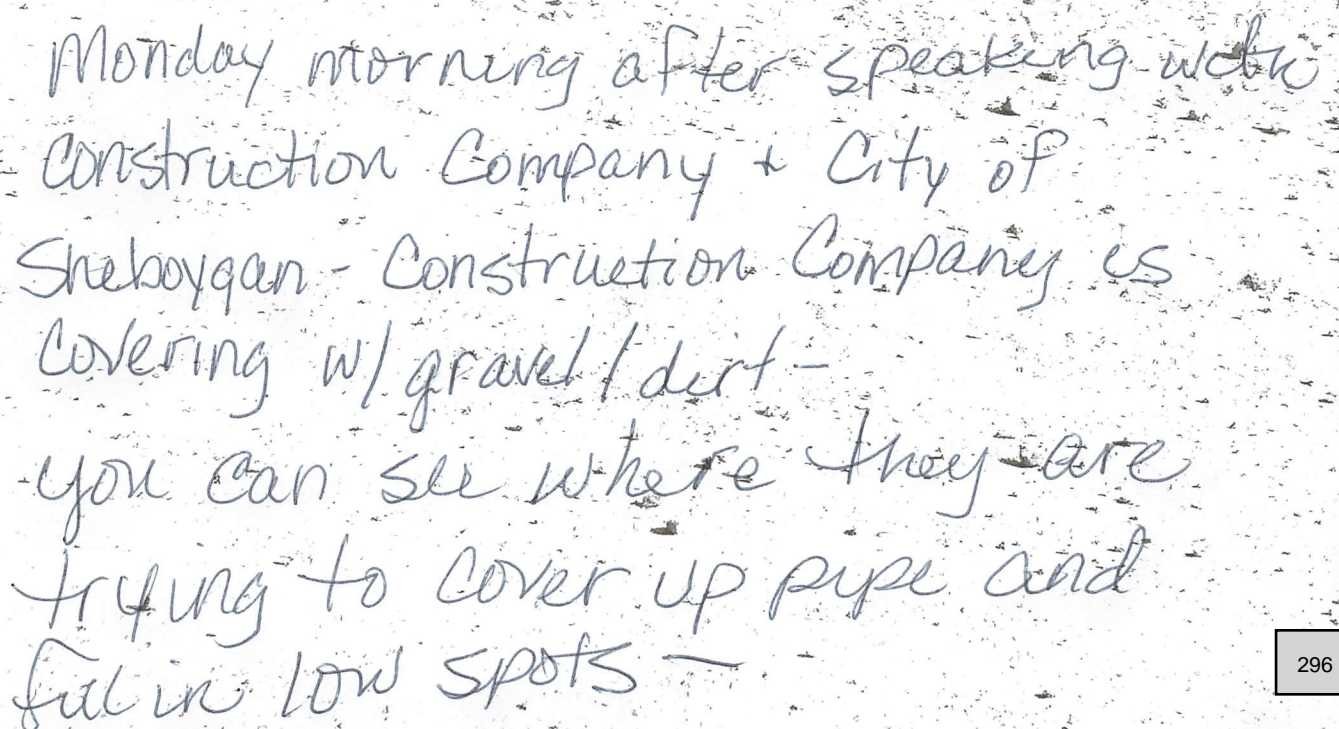 Monday morning after speaking with
Construction Company & City of
Sheboygan - Construction Company is
Covering w/ gravel/dirt -
you can see where they are
trying to cover up pipe and
fill in low spots -
296